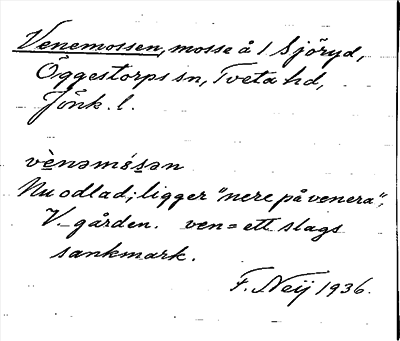 Venemossen, mosse å 1 Sjöryd,
Öggestorps sn, Tveta hd,
Jönk. l.
vè̱nəmòs̱ən
Nu odlad; ligger "nere på venera",
V-gården. ven = ett slags
sankmark.
F. Neij 1936.